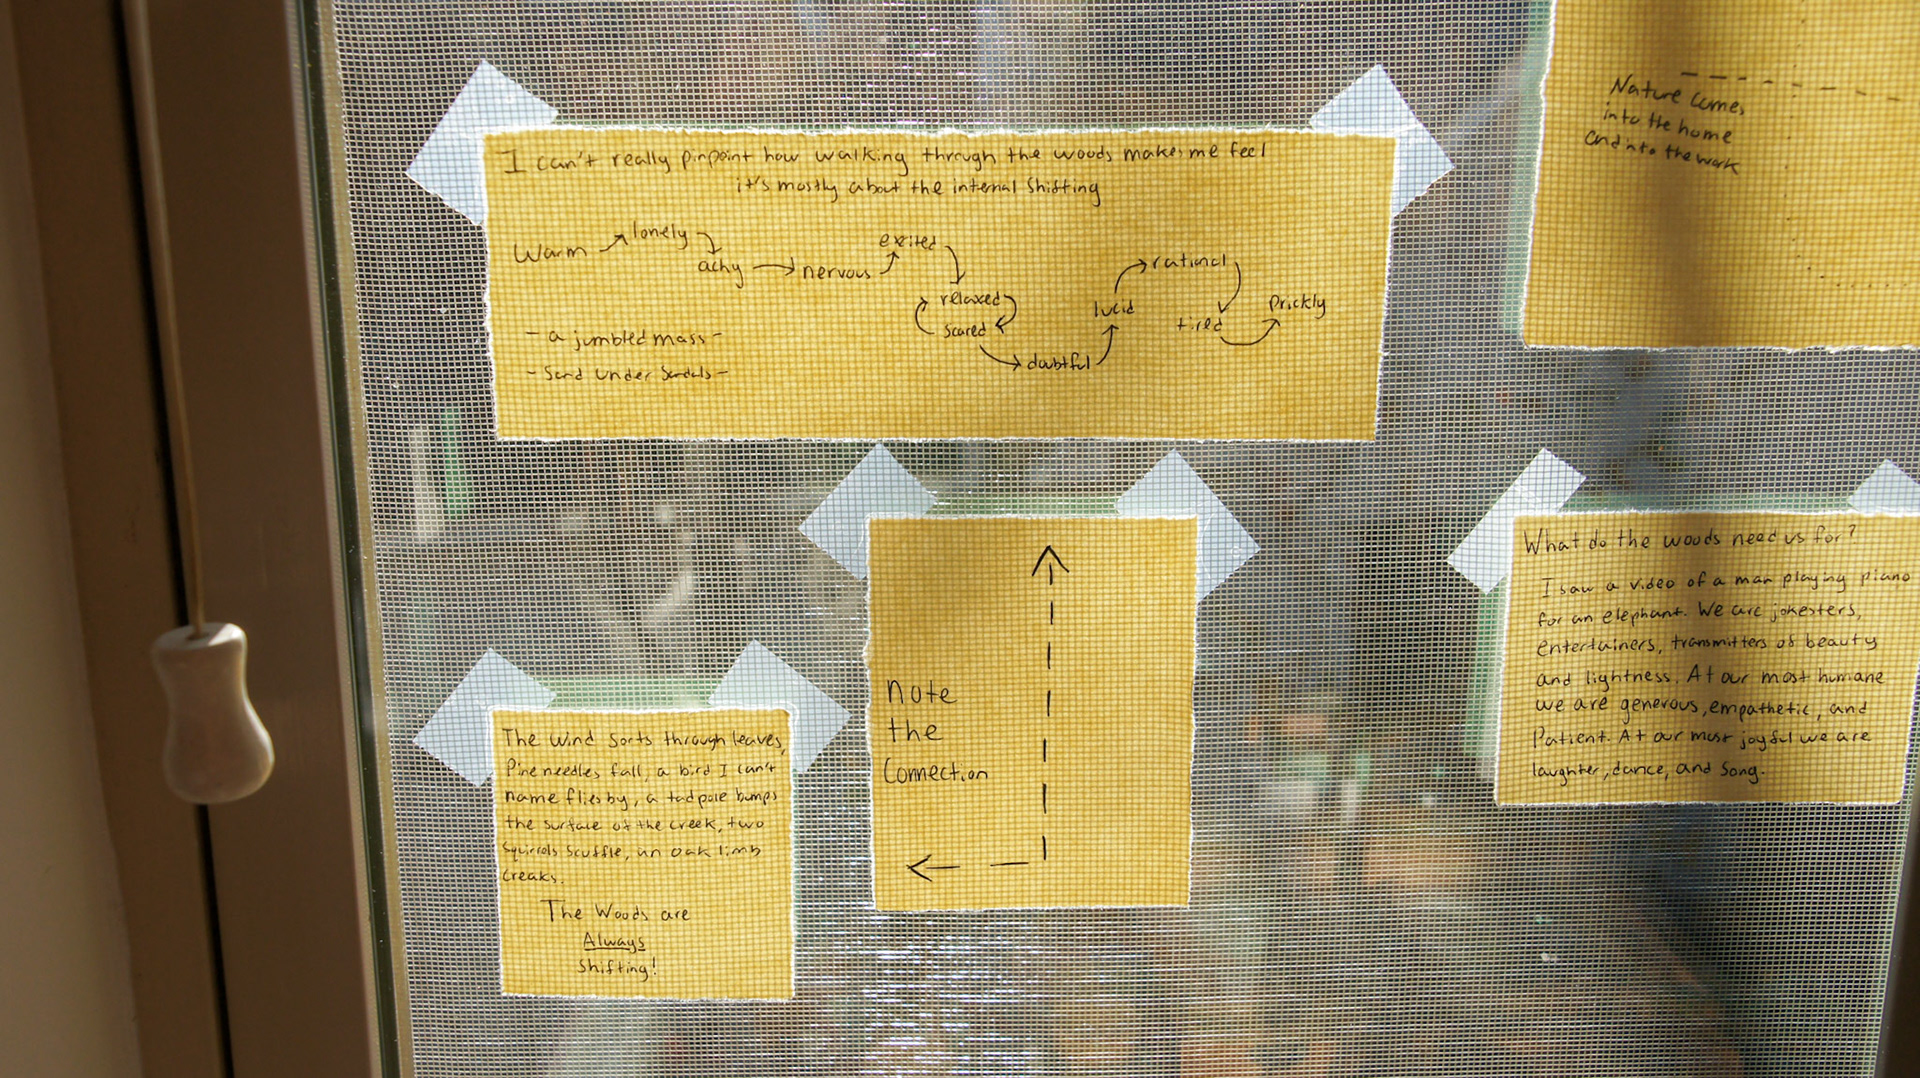 I can't really pinpoint how walking through the woods makes me feel
it's mostly about the internal shifting
Warm lonely achy nervous excited
relaxed
scared
doubtful lucid rational tired prickly
- a jumbled mass -
- Sand under Sandals -
Nature comes
into the home
and into the work
note
the
Connection
The wind sorts through leaves,
Pine needles fall, a bird I can't
name flies by, a tadpole bumps
the surface of the creek, two
squirrels scuffle, an oak limb
creaks.
The Woods are
Always
Shifting!
What do the woods need us for?
I saw a video of a man playing piano
for an elephant. We are jokesters,
entertainers, transmitters of beauty
and lightness. At our most humane
we are generous, empathetic, and
Patient. At our most joyful we are
laughter, dance, and Song.